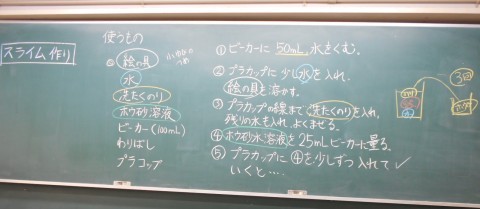 スライム作り
使うもの
絵の具
水
洗たくのり
ホウ砂溶液
ビーカー(100mL)
わりばし
プラコップ
① ビーカーに 50mL, 水をくむ。
② プラカップに 少し水を入れ、
絵の具を溶かす。
③ プラカップの線まで 洗たくのりを入れ、
残りの水も入れ、よくまぜる。
④ ホウ砂水溶液を 25mL ビーカーに量る。
⑤ プラカップに ④を少しずつ入れて
いくと…。
3回